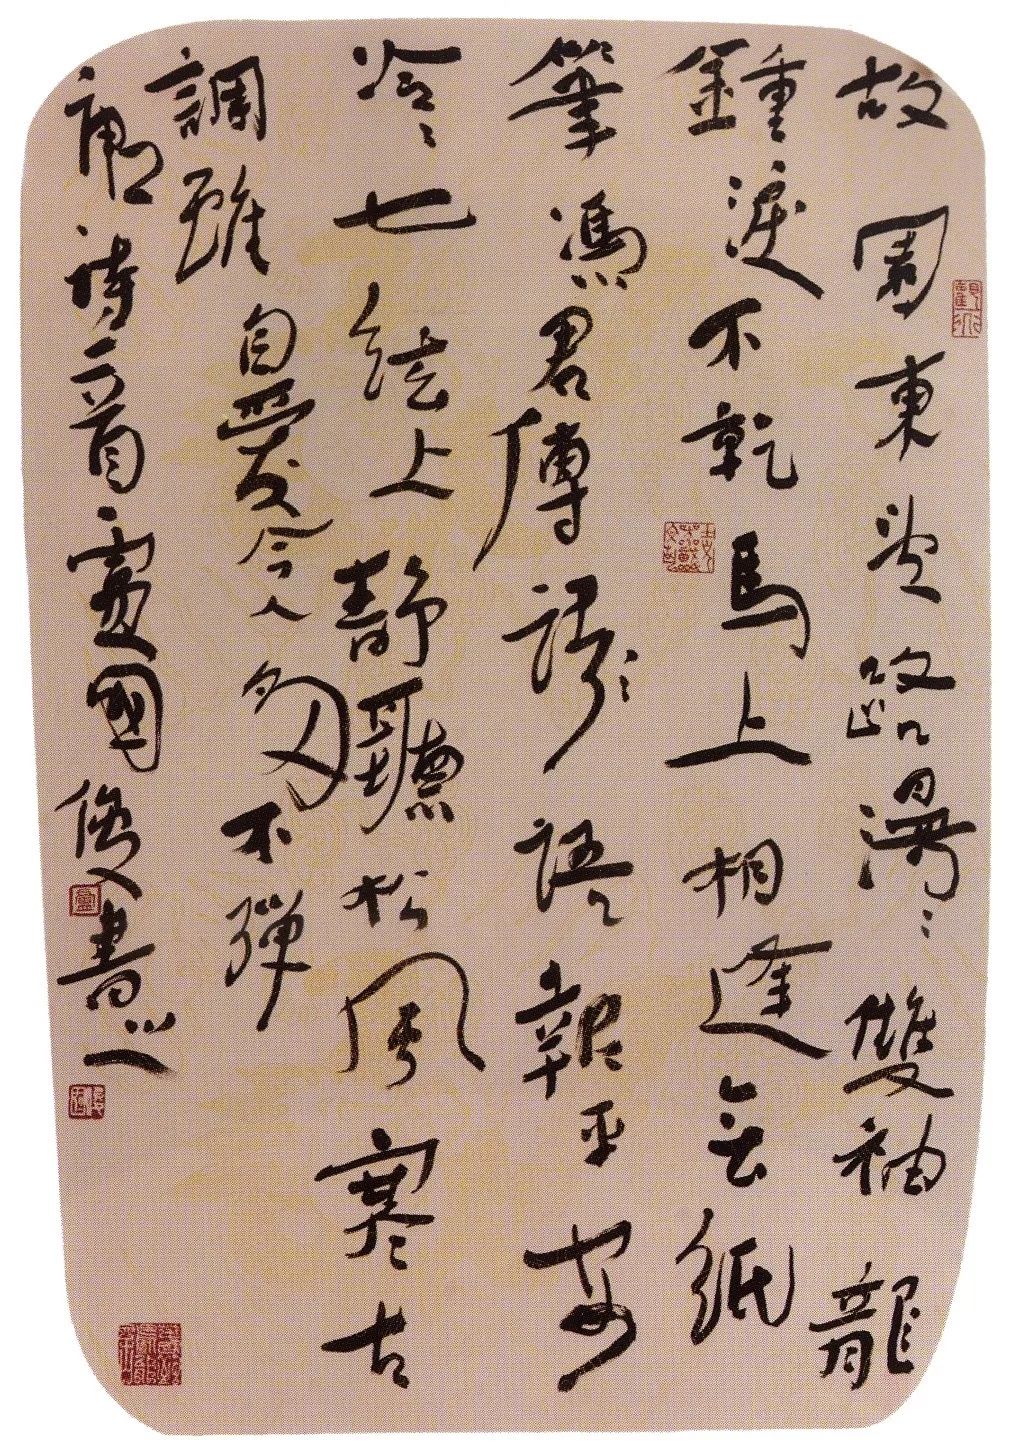 故園東望路漫〻雙袖龍
鍾淚不乾馬上相逢無紙
筆馮君傳語報平安
冷〻七絃上靜聽松風寒古
調雖自愛今人多不彈
唐詩二首國俊書